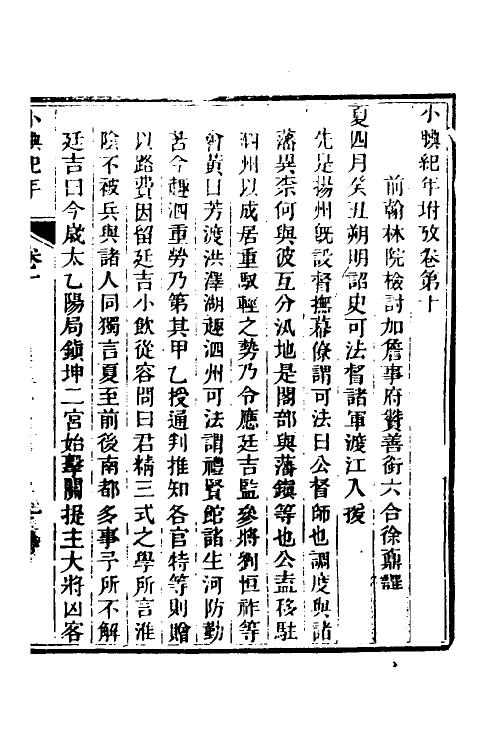 小腆紀年坿攷卷第十
前翰林院檢討加詹事府贊善銜六合徐鼒譔
夏四月癸丑朔明詔史可法督諸軍渡江入援
先是揚州旣設督撫幕僚謂可法曰公督師也調度與諸
藩異柰何與彼互分汛地是閣部與藩鎭等也公盍移駐
泗州以成居重馭輕之勢乃令應廷吉監參將劉恒祚等
會黃日芳渡洪澤湖趣泗州可法謂禮賢館諸生河防勤
苦今趣泗重勞乃第其甲乙授通判推知各官特等則贈
以路費因留廷吉小飲從容問曰君精三式之學所言淮
陰不被兵與諸人同獨言夏至前後南都多事予所不解
廷吉曰今歲太乙陽局鎭坤二宮始擊關提主大將凶客
小腆紀年
卷十